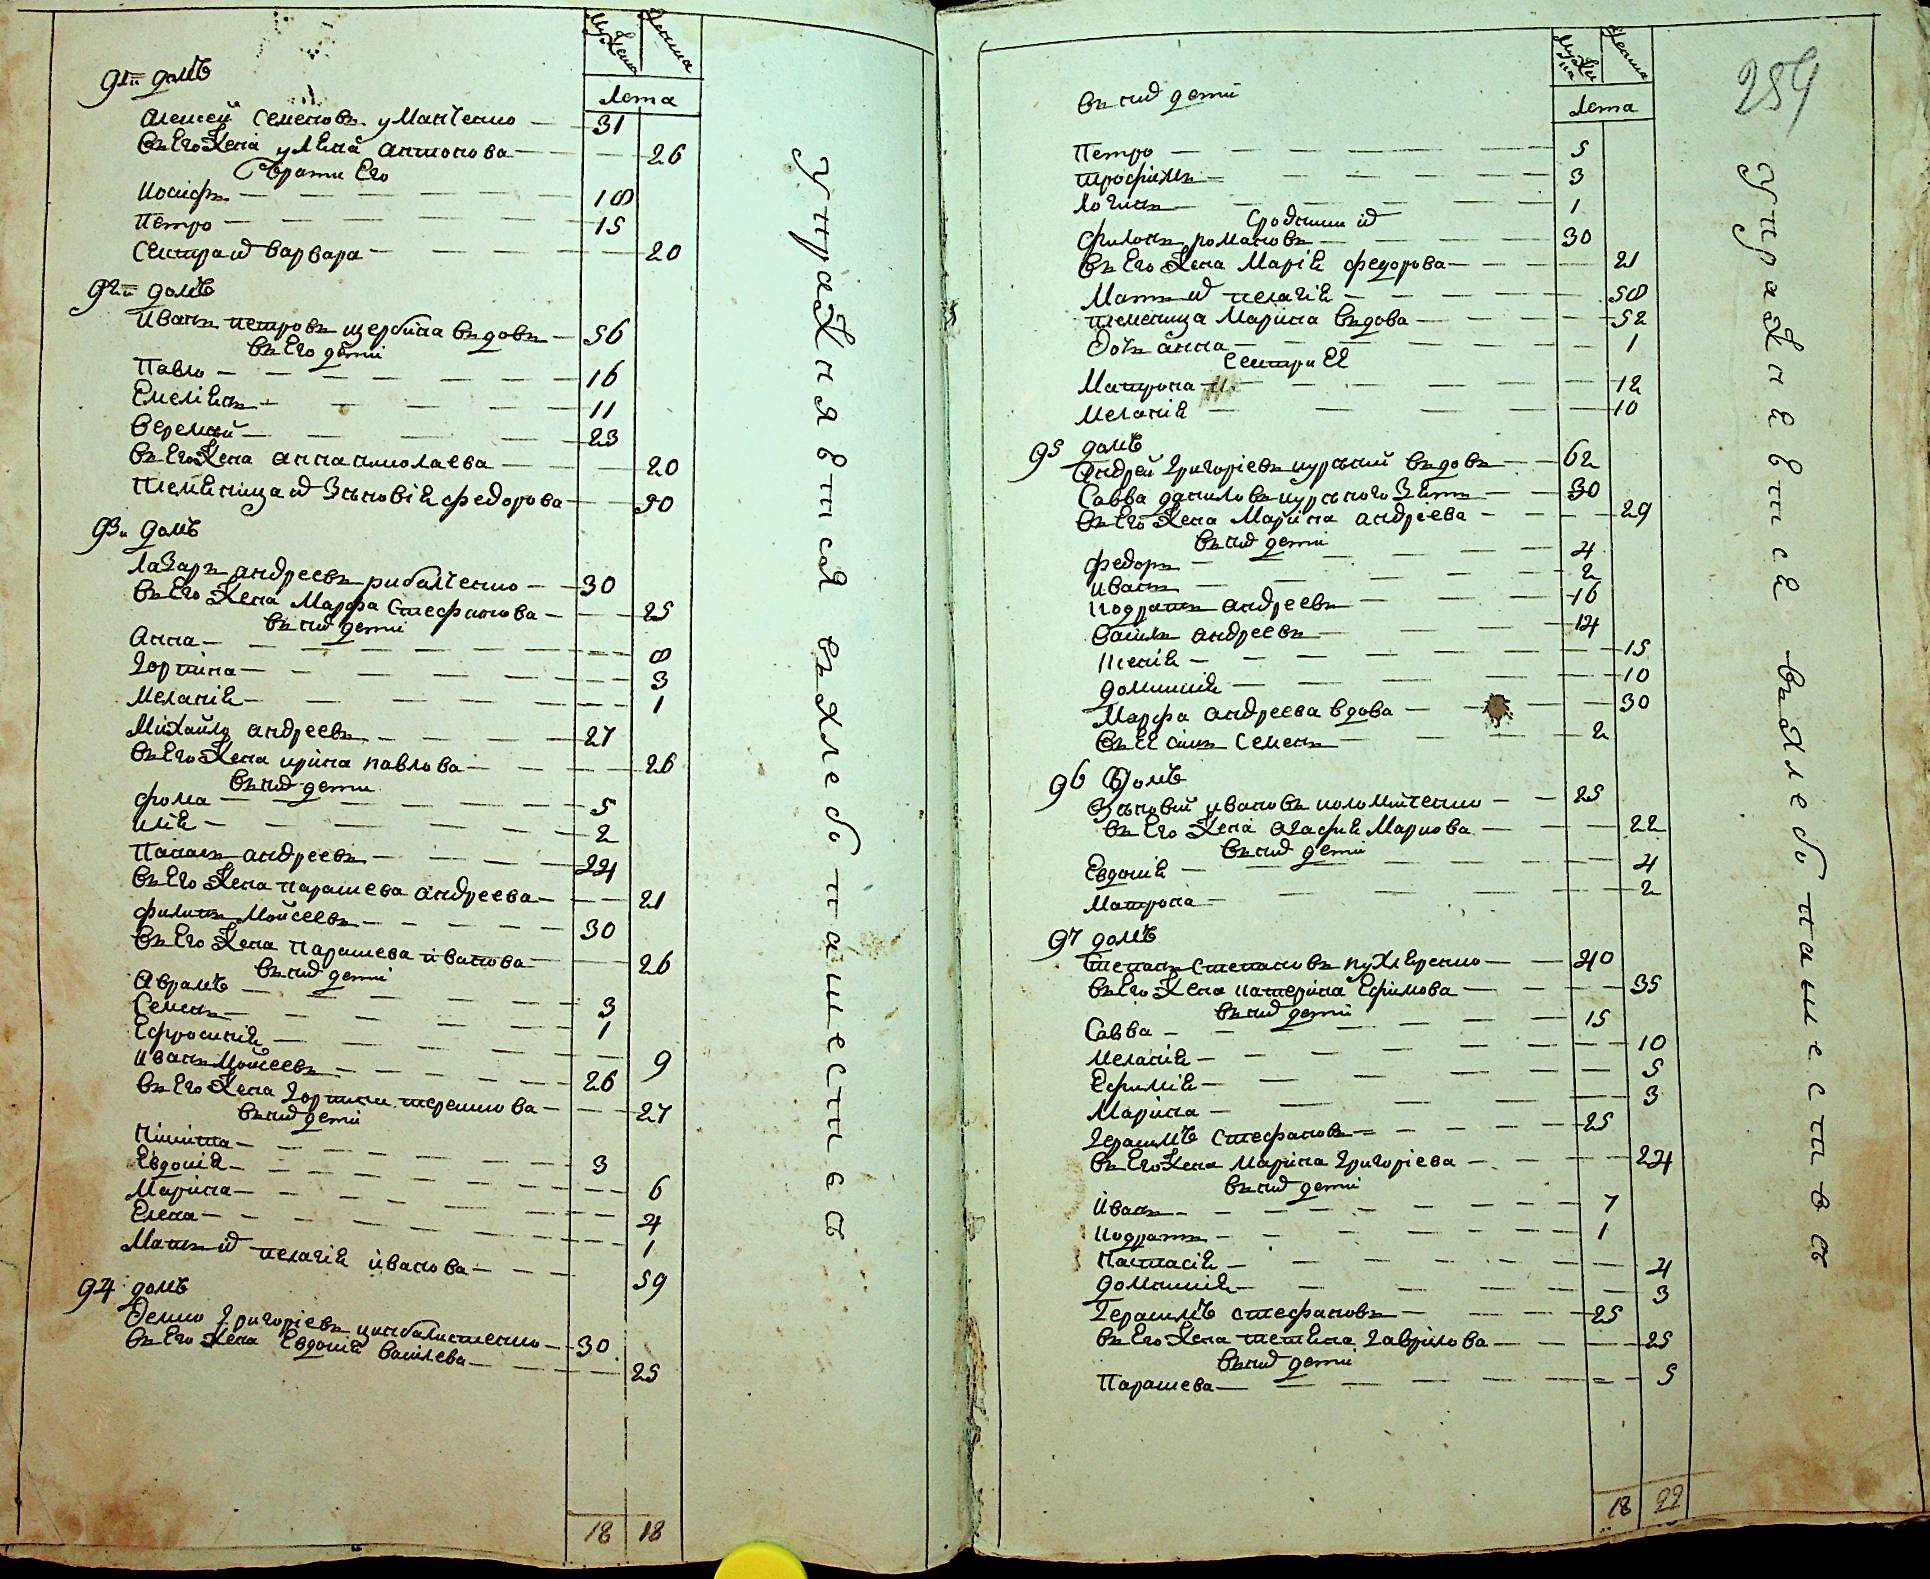 Мужеска Женска
Лета
91й домъ
Алексей Семеновъ уманченко — 31
въ Его Жена улѣна антонова — 26
брати Его
Иосифъ — 18
Петро — 15
Сестра Варвара — 20
92й домъ
Иванъ петровъ щербина въдовъ — 56
въ Его дети
Павло — 16
Емелѣнъ — 11
Веремѣй — 23
въ Его Жена анна николаева — 20
Племѣница Зѣновіѣ федорова — 50
93й домъ
Лазаръ андреевъ рибалченко — 30
въ Его Жена Марфа Стефанова — 25
въ них дети
Анна — 8
горпина — 3
Меланіѣ — 1
Михайло андреевъ — 27
въ Его Жена ирина павлова — 26
въ них дети
фома — 5
илiѣ — 2
Панасъ андреевъ — 24
въ Его Жена парашева андреева — 21
филипъ Мойсеевъ — 30
въ Его Жена парашева иванова — 26
въ них дети
Аврамъ — 3
Семенъ — 1
Ефросиніѣ — 9
Иванъ Мойсеевъ — 26
въ Его Жена горпина терешкова — 27
въ них дети
Никита — 3
Евдокіѣ — 6
Марина — 4
Елена — 1
Мать их пелагіѣ иванова — 59
94 домъ
Демко григоріевъ цимбалистенко — 30
въ Его Жена Евдокіѣ василева — 25
18 18
упражняется въ хлебопашествѣ
Мужеска Женска
Лета
254
въ них дети
Петро — 5
трофимъ — 3
Логинъ — 1
Сродники их
филонъ романовъ — 30
въ Его Жена Маріѣ федорова — 21
Мать их пелагіѣ — 58
племеница Марина въдова — 52
Дочь анна — 1
Сестри Ее
Матрона — 12
Меланіѣ — 10
95 домъ
Андрей григоріевъ курский въдовъ — 62
Савва даниловъ курского Зѣть — 30
въ Его Жена Марина андріева — 29
въ них дети
федоръ — 4
иванъ — 2
Кодратъ андреевъ — 16
Василь андреевъ — 14
Ксеніѣ — 15
домникіѣ — 10
Марфа андреева вдова — 30
въ Ее синъ Семенъ — 2
96 Домъ
Зѣновий ивановъ коломийченко — 25
въ Его Жена агафиѣ Маркова — 22
въ них дети
Евдокіѣ — 4
Матрона — 2
97 домъ
Степанъ Степановъ пухлѣренко — 40
въ Его Жена катерина Ефимова — 35
въ них дети
Савва — 15
Меланіѣ — 10
Ефиміѣ — 5
Марина — 3
герасимъ Стефановъ — 25
въ Его Жена Марина григоріева — 24
въ них дети
Иванъ — 7
Кодратъ — 1
Настасіѣ — 4
домникіѣ — 3
Герасимъ стефановъ — 25
въ Его Жена тетѣна гаврилова — 25
въ них дети
Парашева — 5
18 22
упражнѣется въ хлебопашествѣ